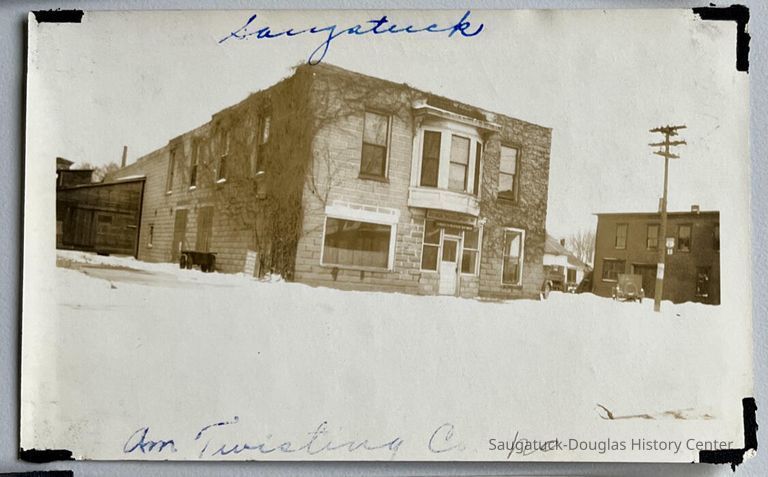 Saugatuck
Am Twisting Co.
Saugatuck-Douglas History Center